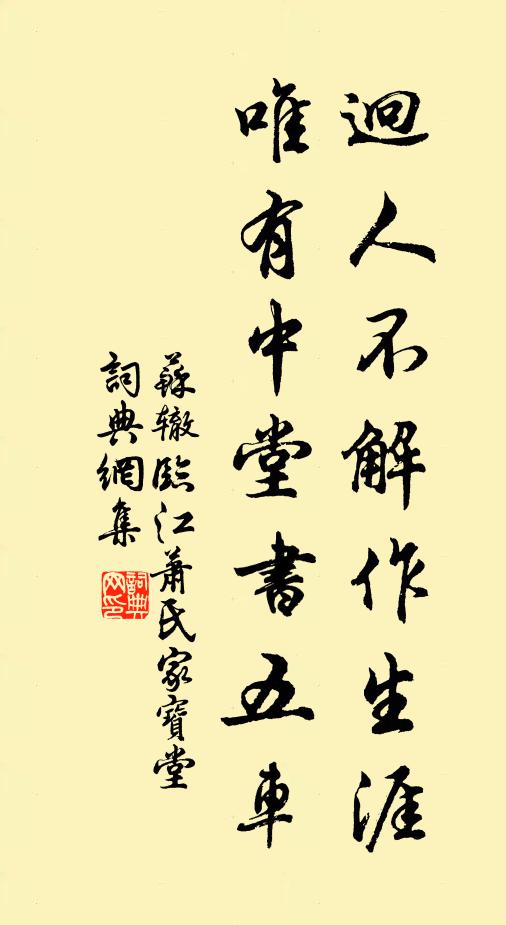 迴人不解作生涯
唯有中堂書五車
蘇轍臨江蕭氏家寶堂
詞典網集
詞典網印